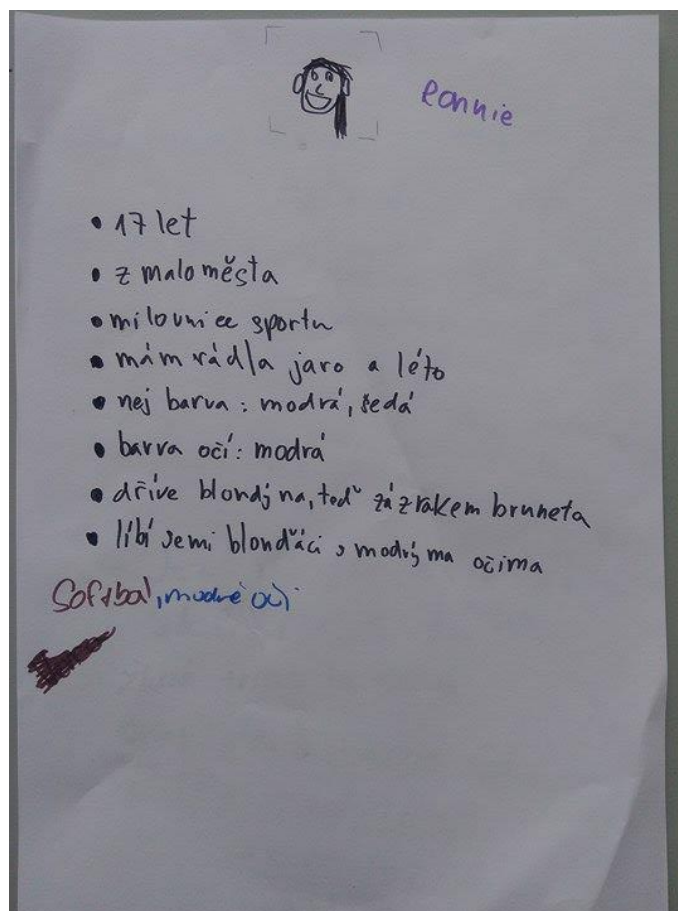 Ronnie
• 17 let
• z maloměsta
• milovnice sportu
• mám rádla jaro a léto
• nej barva: modrá, šedá
• barva očí: modrá
• dříve blondýna, teď zázrakem bruneta
• líbí se mi blonďáci s modrýma očima
Softbal, modré oči